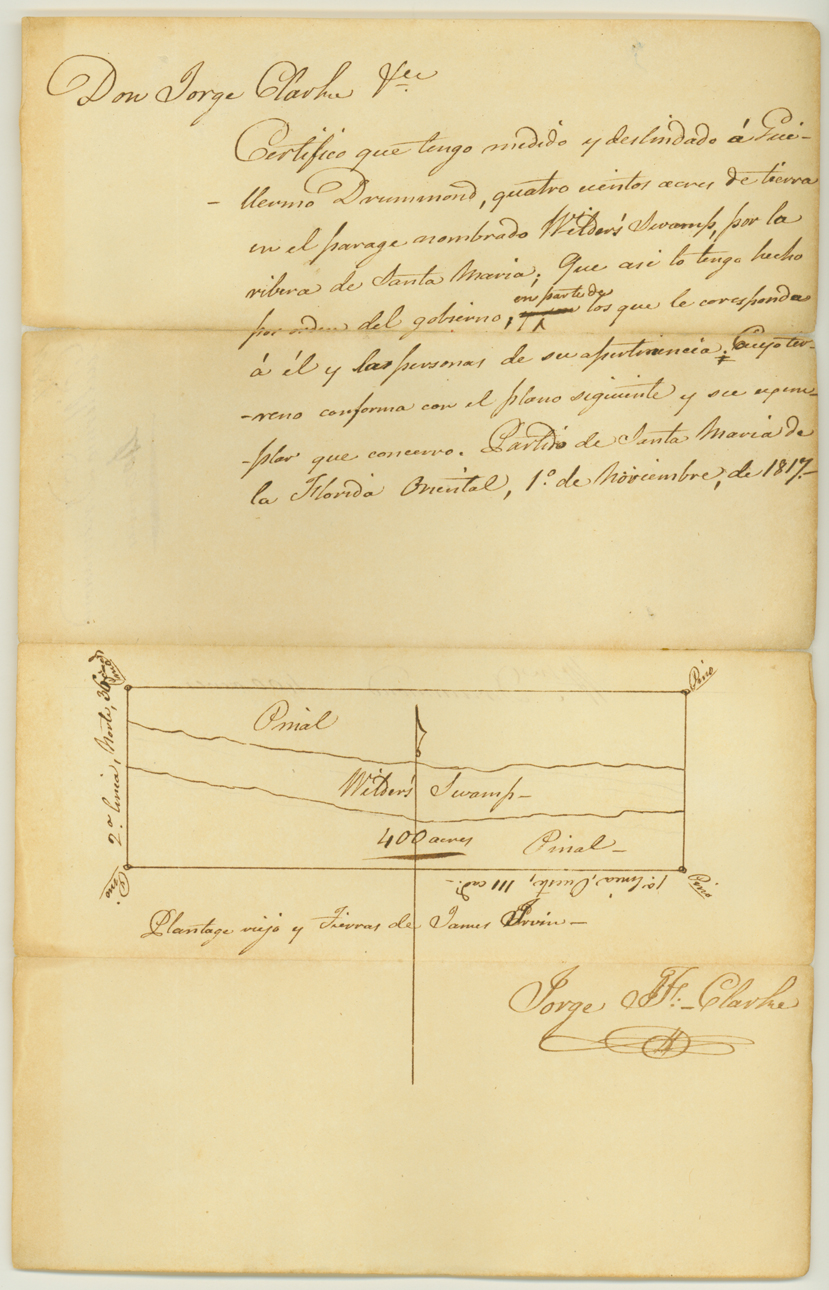 Don Jorge Clarke &ce
Certifico que tengo medido y deslindado á Gui-
-llermo Drummond, quatro cientos acres de tierra
en el parage nombrado Wilder's Swamp, por la
ribera de Santa Maria; Que asi lo tengo hecho
en parte de
por orden del gobierno, los que le coresponda
á él y las personas de su apertinencia: Cuyo ter-
-reno conforma con el plano siguiente y su exem-
-plar que concerro. Partido de Santa Maria de
la Florida Oriental, 1º de Noviembre, de 1817.-
Pine
Pinal
2ª linea, Norte, 36
Wilder's Swamp-
400 acres
Pinal-
1ª linea, Oeste, 111 cad.-
Pino
Plantage viejo y Tierras de James Irvin-
Jorge J. F. - Clarke